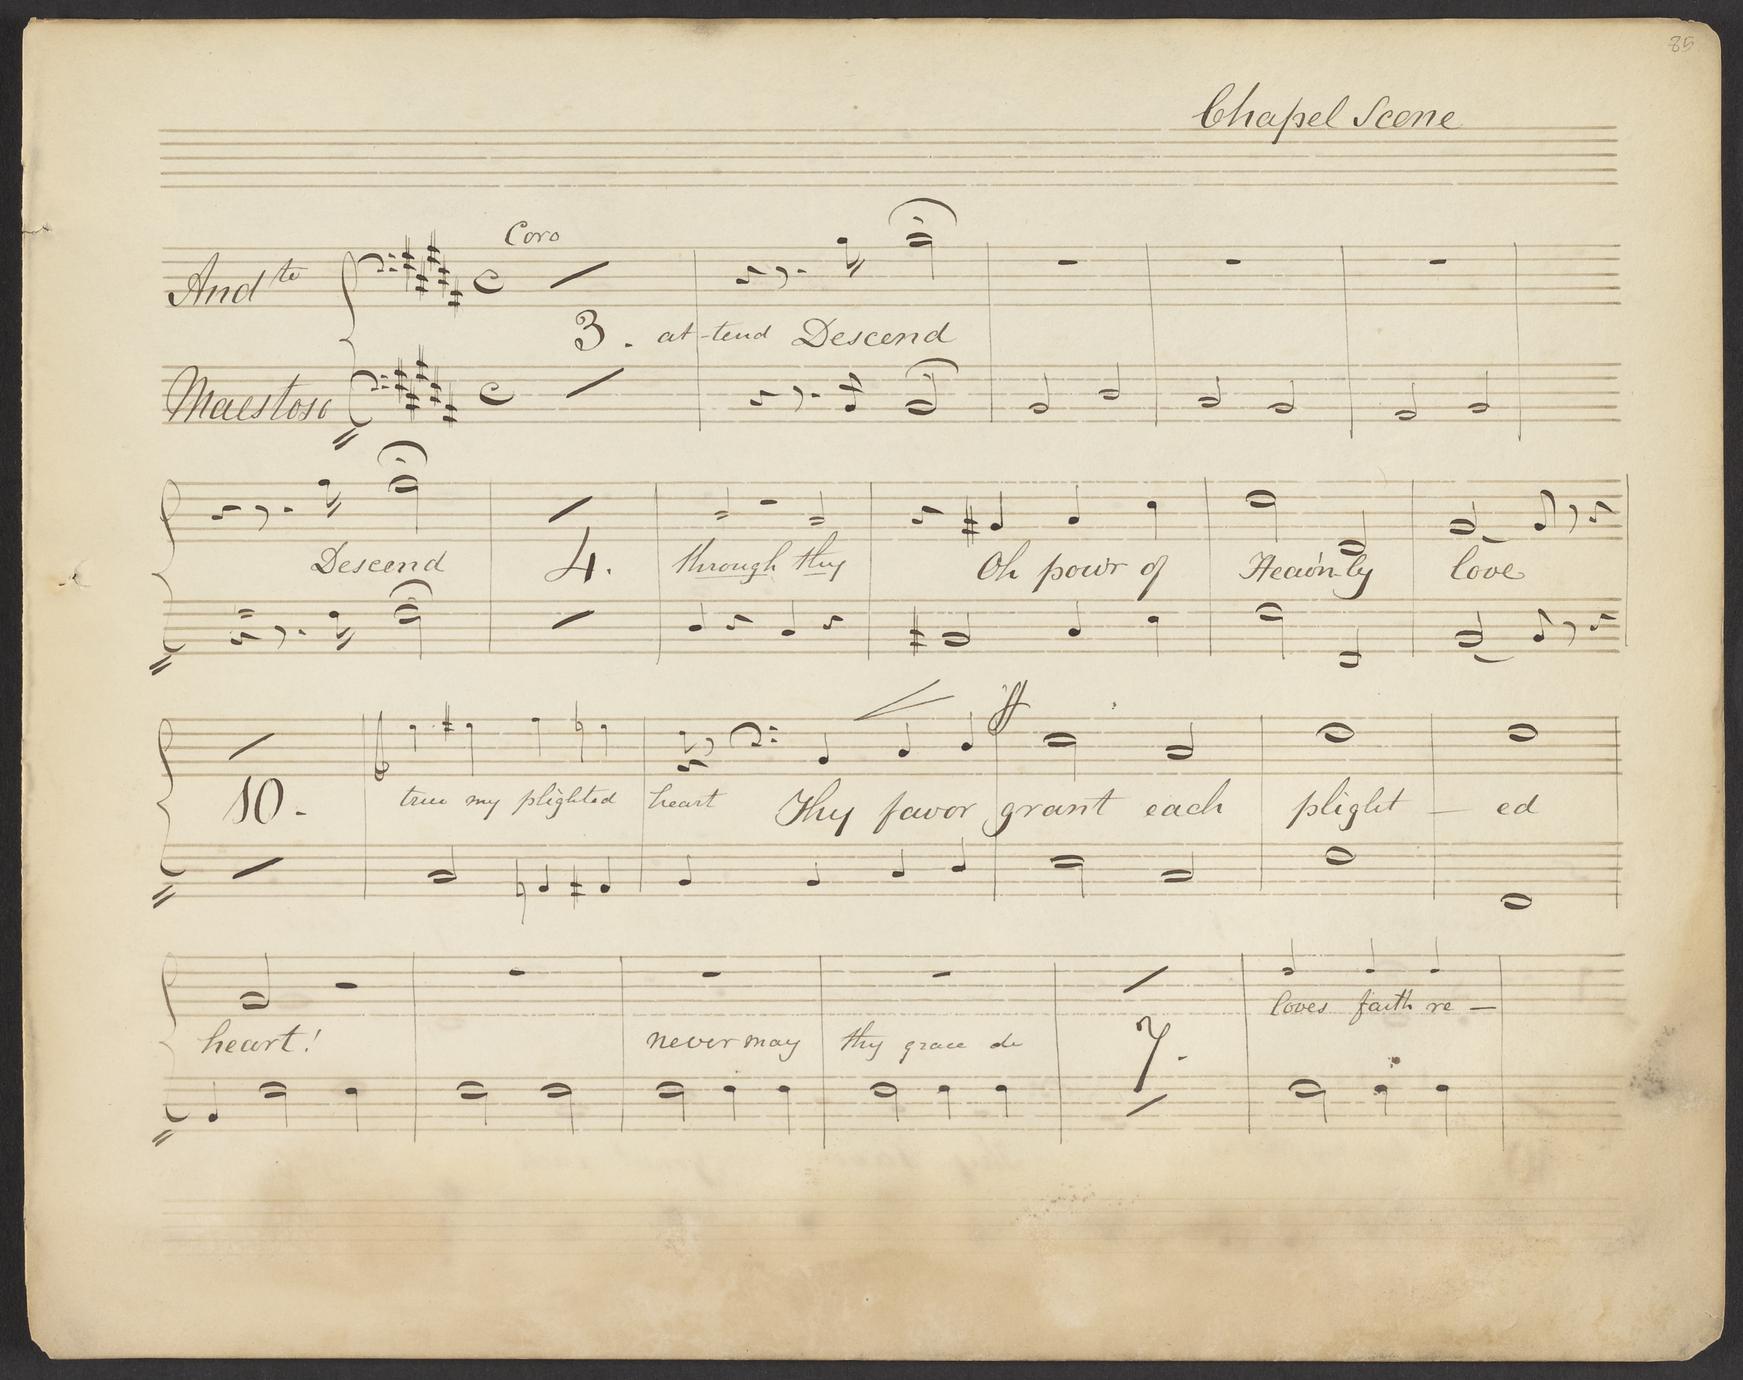 85
Chapel Scene
Coro
And te
3. at-tend Descend
Maestoso
Descend 4. through thy Oh pow'r of Heav'n-ly love
ff
10. true my plighted heart Thy favor grant each plight - ed
loves faith re -
heart! never may thy grace de 7.